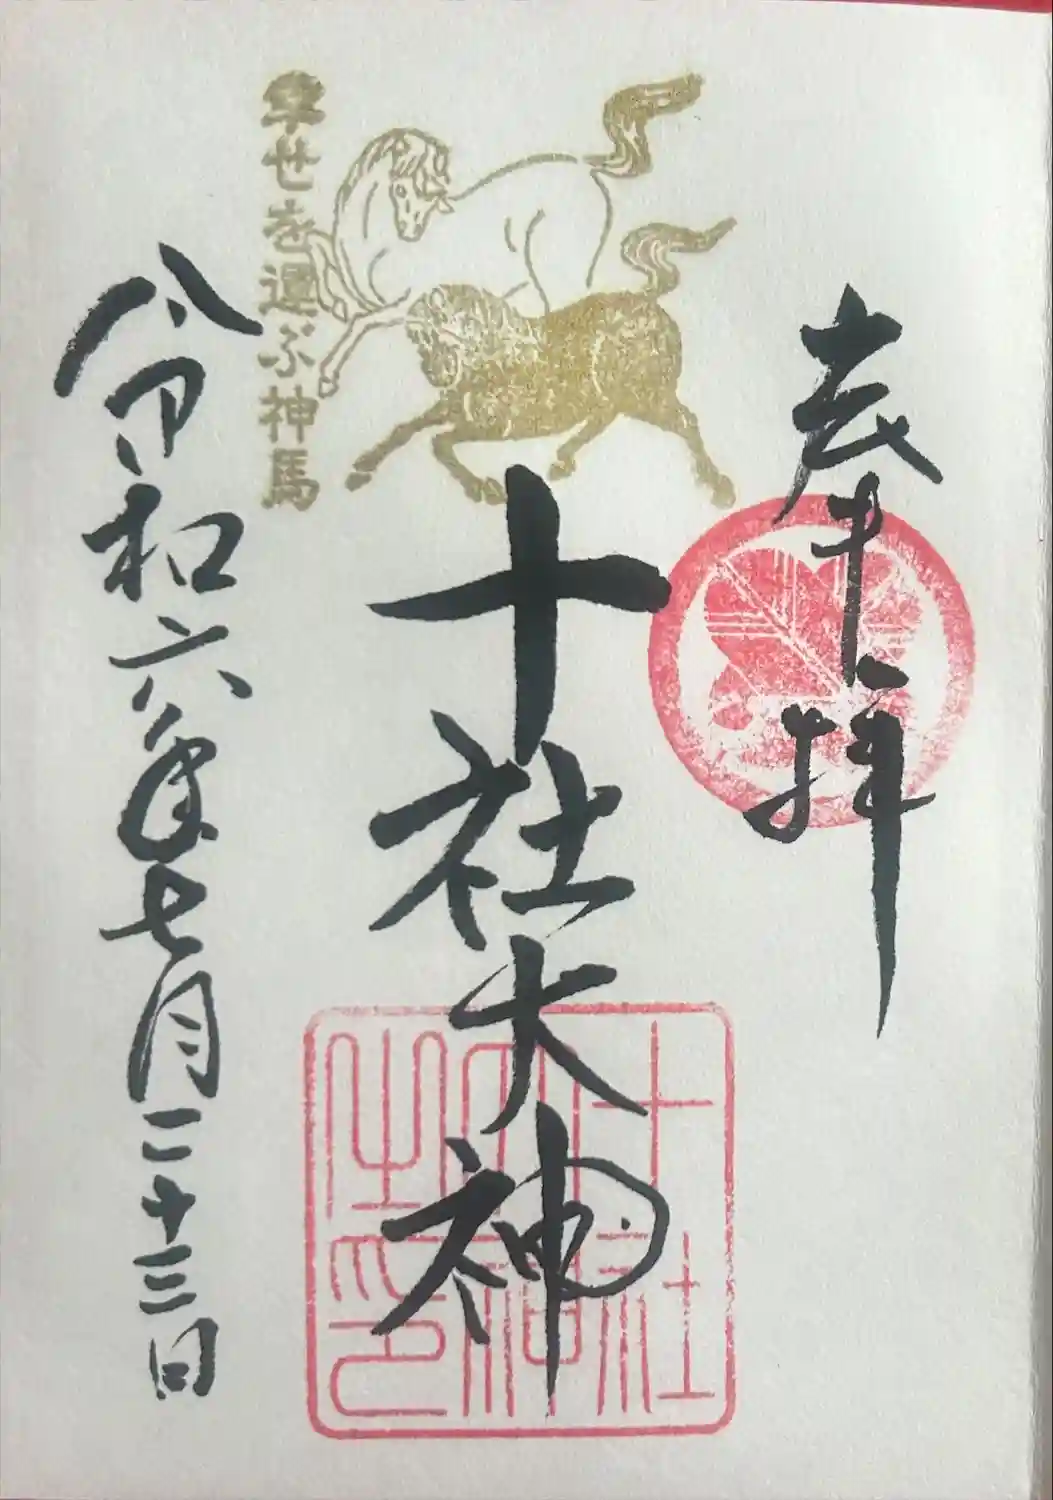 奉拝
十社大神
幸せを運ぶ神馬
令和六年七月二十三日
十社
大神
之印